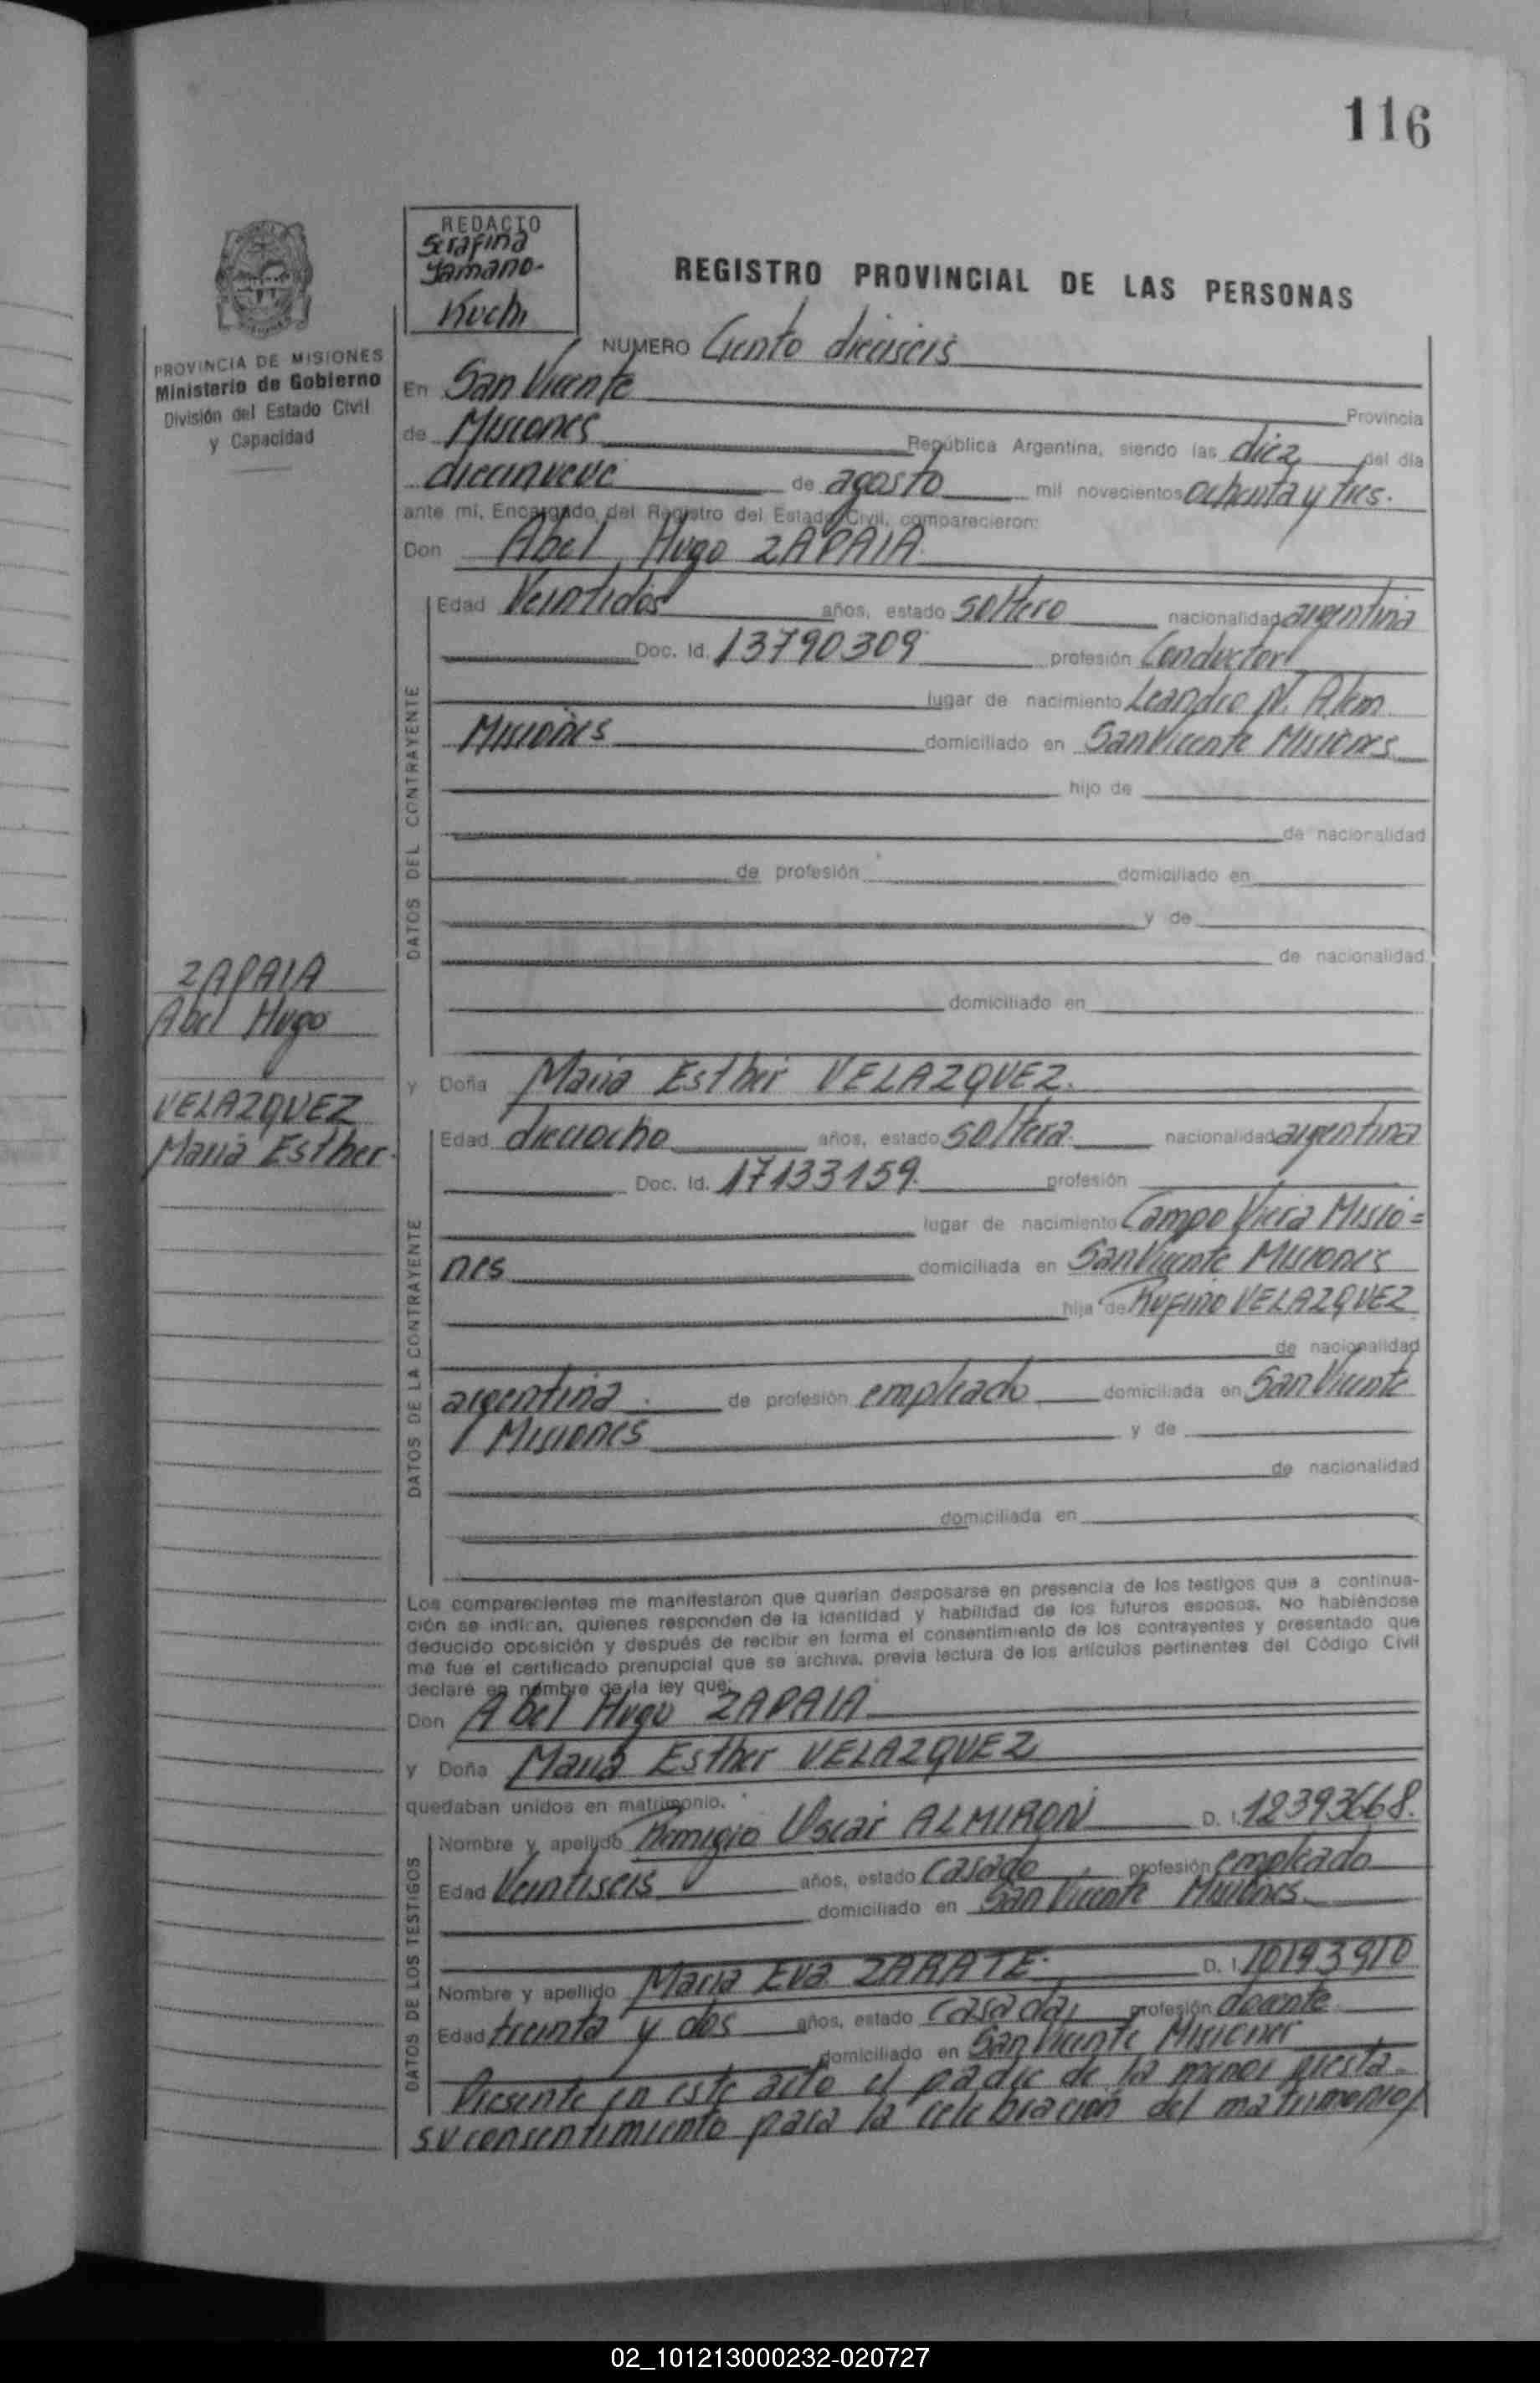 116
REDACTO
Serafina
Yamano-
Kuch
REGISTRO PROVINCIAL DE LAS PERSONAS
PROVINCIA DE MISIONES
Ministerio de Gobierno
División del Estado Civil
y Capacidad
NUMERO Ciento dieciseis
En San Vicente Provincia
de Misiones República Argentina, siendo las diez del día
diecinueve de agosto mil novecientos ochenta y tres.
ante mí, Encargado del Registro del Estado Civil, comparecieron:
Don Abel Hugo ZAPAIA
Edad Veintidós años, estado soltero nacionalidad argentina
Doc. Id. 13790309 profesión Conductor
lugar de nacimiento Leandro N. Alem
Misiones domiciliado en San Vicente Misiones
hijo de
de nacionalidad
de profesión domiciliado en
y de
de nacionalidad
domiciliado en
DATOS DEL CONTRAYENTE
ZAPAIA
Abel Hugo
VELAZQUEZ
María Esther.
y Doña María Esther VELAZQUEZ.
Edad dieciocho años, estado soltera. nacionalidad argentina
Doc. Id. 17133159. profesión
lugar de nacimiento Campo Viera Misio=
nes domiciliada en San Vicente Misiones
hija de Rufino VELAZQUEZ
de nacionalidad
argentina. de profesión empleado domiciliada en San Vicente
Misiones y de
de nacionalidad
domiciliada en
DATOS DE LA CONTRAYENTE
Los comparecientes me manifestaron que querían desposarse en presencia de los testigos que a continua-
ción se indican, quienes responden de la identidad y habilidad de los futuros esposos. No habiéndose
deducido oposición y después de recibir en forma el consentimiento de los contrayentes y presentado que
me fue el certificado prenupcial que se archiva, previa lectura de los artículos pertinentes del Código Civil
declaré en nombre de la ley que:
Don Abel Hugo ZAPAIA
y Doña María Esther VELAZQUEZ
quedaban unidos en matrimonio.
Nombre y apellido Remigio Oscar ALMIRON D. I. 12393668.
Edad Veintiseis años, estado casado, profesión empleado
domiciliado en San Vicente Misiones.
Nombre y apellido María Eva ZARATE. D. I. 10193910
Edad treinta y dos años, estado casada, profesión docente
domiciliado en San Vicente Misiones
DATOS DE LOS TESTIGOS
Presente en este acto el padre de la menor presta
su consentimiento para la celebración del matrimonio/
02_101213000232-020727